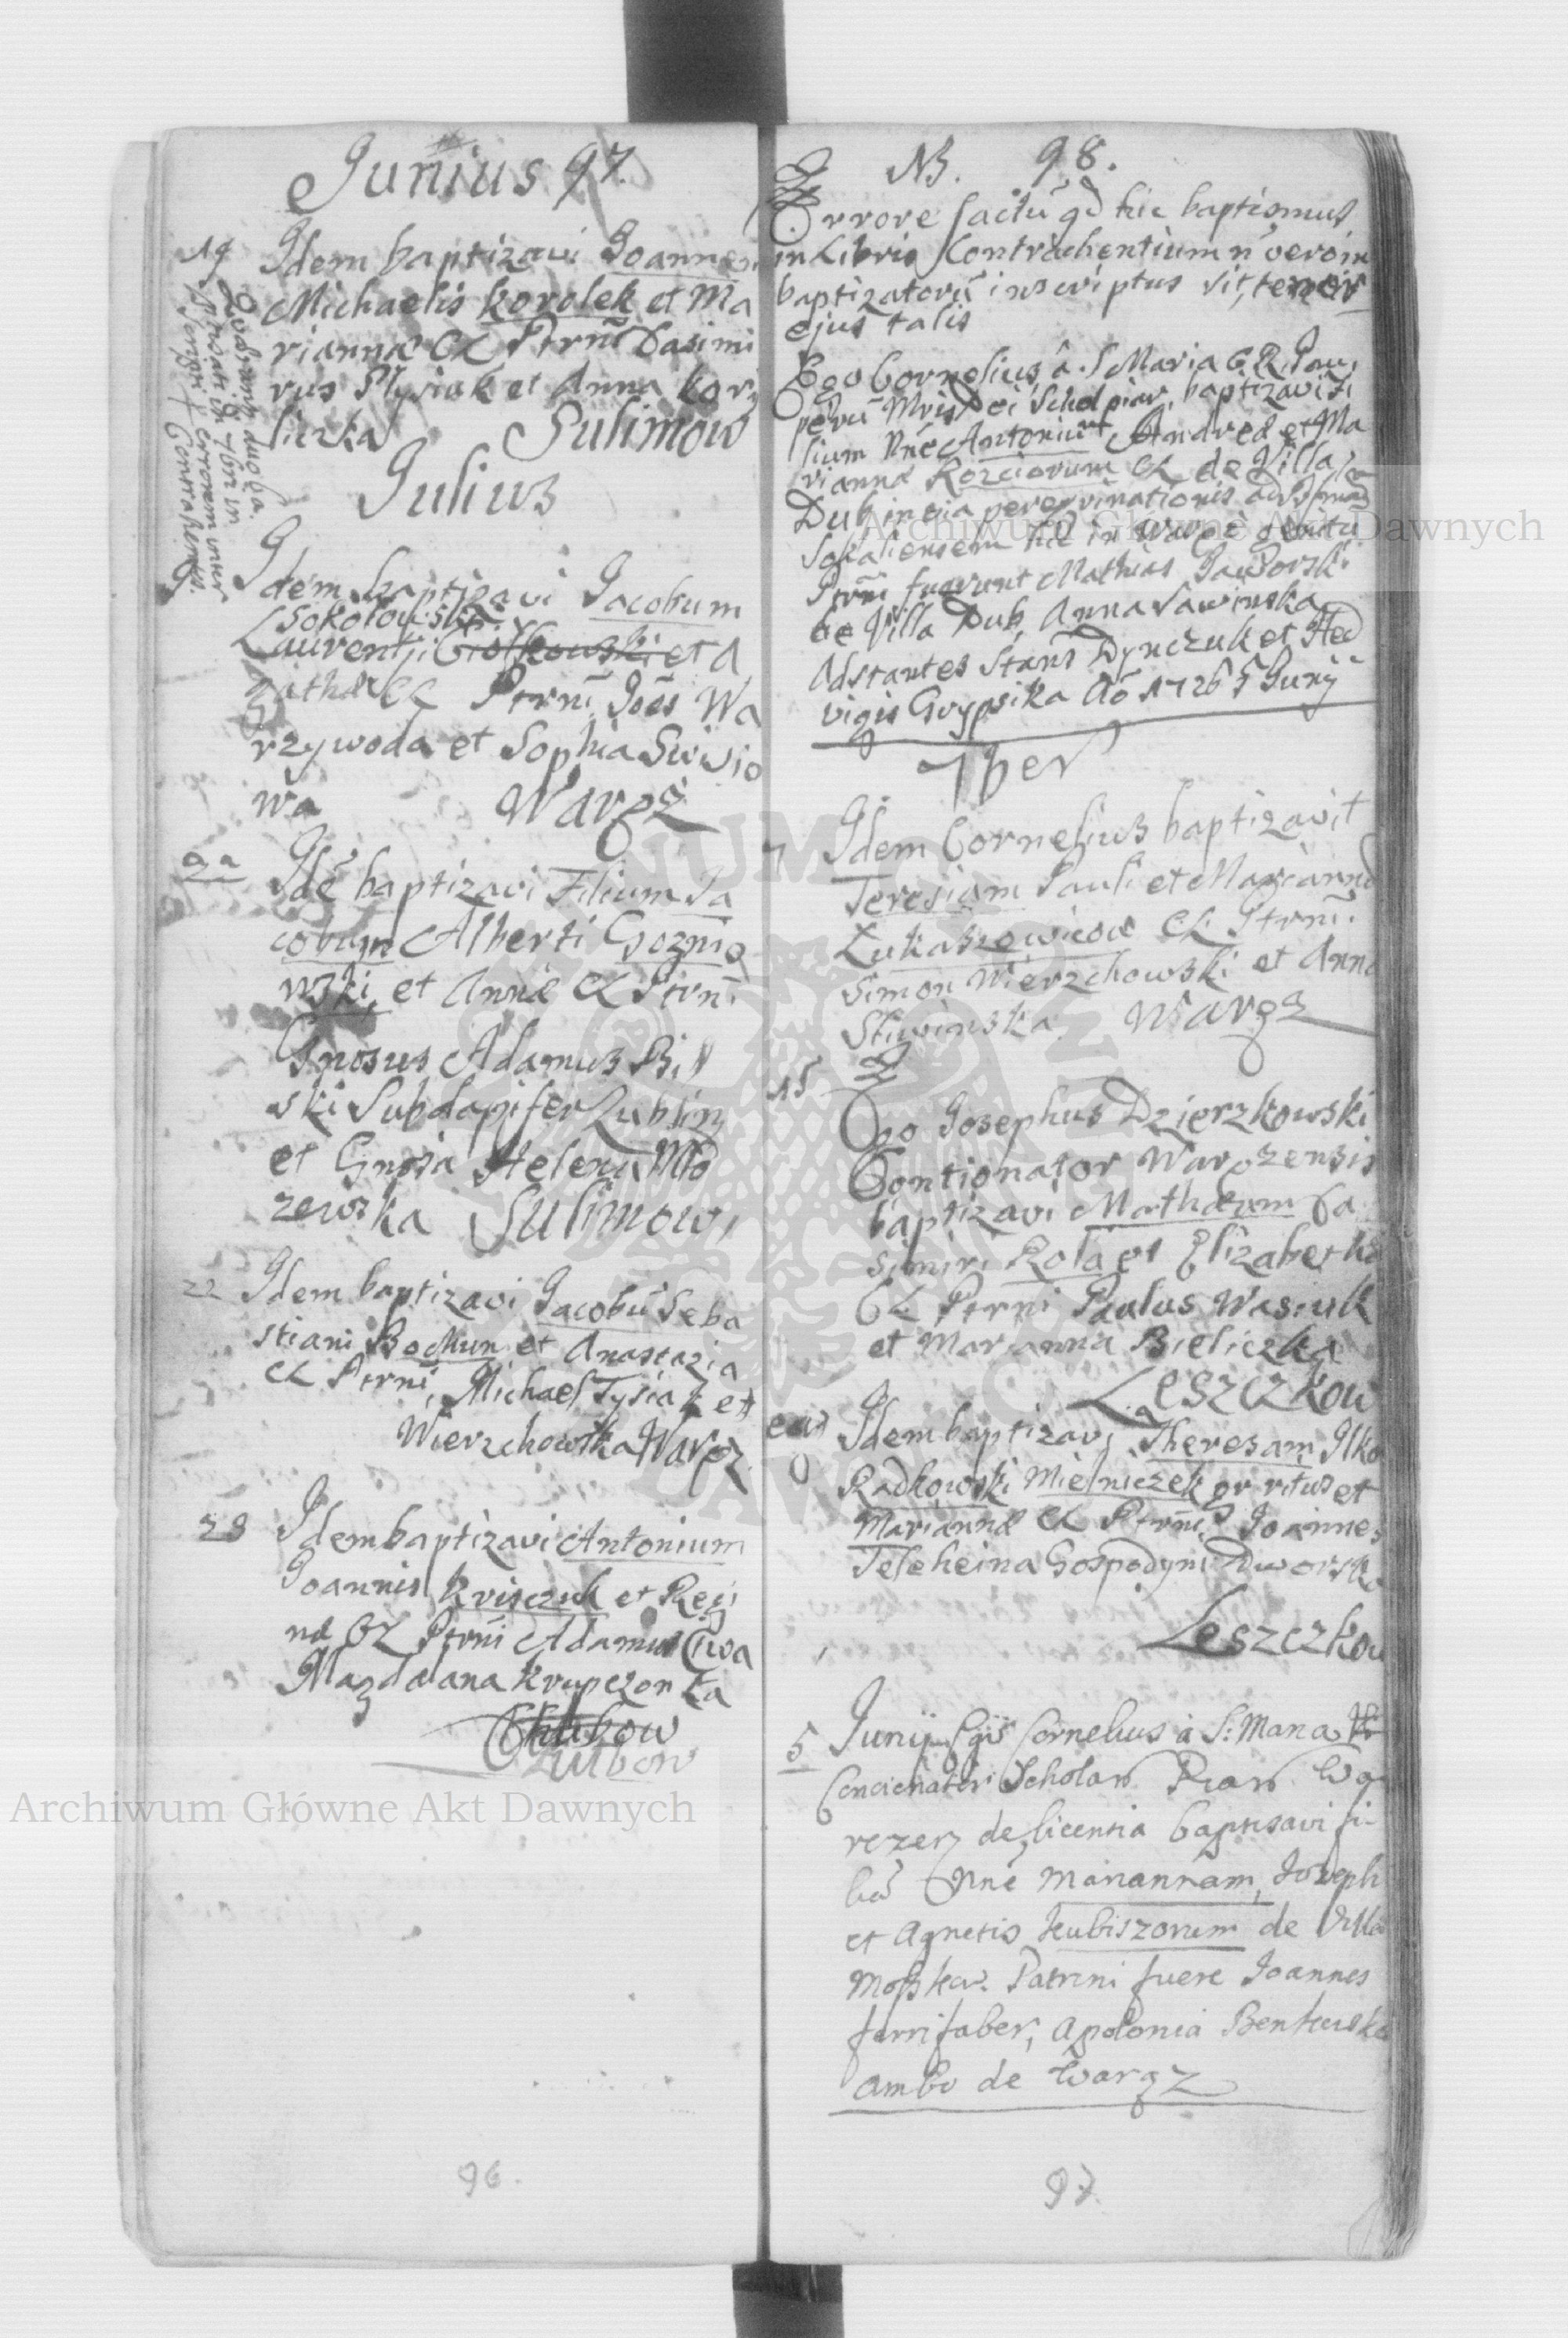 Junius 97.
19 Idem baptizavi Joannem
Michaelis Korolek et Ma
riannæ CL Ptrnī Casimi
rus Plysiak et Anna Kory
liczka Sulimow
Julius
Idem baptizavi Jacobum
Sokolowski
Laurentji et A
gathæ CL Ptrnī Joēs Wa
rzywoda et Sophia Siwio
wa Waręz
Idē baptizavi Filium Ja
cobum Alberti Gozmio
wski et Annæ CL Ptrnī
Gnosus Adamus
ski Subdapifer Lublin
et Gnosa Helena Mło
zewska Sulimow
22 Idem baptizavi Jacobū Seba
stiani Bochun et Anastazia
CL Ptrnī Michael Tysiak et
Wierzchowska Waręz
Idem baptizavi Antonium
Joannis Krisczuk et Regi
næ CL Ptrnī Adamus
Magdalana Krupczonka
Chubow
96.
NB. 98.
Errore factū qd hic baptismus
in Libris Contrahentium n vero in
baptizatorū inscriptus sit, tenor
ejus talis
Ego Cornelius â S Maria C R Pau
perū Mris Dei Schol piar, baptizavi fi
lium nne Antonium Andreæ et Ma
riannæ Kozciorum CL de Villa
Dub in via peregrinationis ad
Sokaliensem hic in Waręz genitū
Ptrnī fuerunt Mathias Jaworski
de Villa Dub, Anna Sawinska
Adstantes Stans Dynczuk et Hed
vigis Grypsika Aō 1726 5 Junÿ
7ber
7 Idem Cornelius baptizavit
Teresiam Pauli et Mariannæ
Lukaszewicow CL Ptrnī.
Simon Wierzchowski et Anna
Sliwinska Waręz
15 Ego Josephus Dzierzkowski
Contionator Waręzensis
baptizavi Mathæum Ca
simiri Rola et Elizabethæ
CL Ptrni Paulus Wasiuk
et Marianna Bieliczka
Leszczkow
Idem baptizavi Theresam Ilko
Radkowski Mielniczek gr ritus et
Mariannæ CL Ptrnī Joannes
Teleheina Gospodyni Dworska
Leszczkow
5 Junÿ Ego Cornelius à S: Maria
Concionator Scholar Piar Wa
rezen de licentia baptisavi fi-
nne Mariannam, Joseph
et Agnetis Kubiszorum de Villa
Moszkow. Patrini fuere Joannes
ferrifaber, Apolonia Benkuska
ambo de Waręz
97
Archiwum Główne Akt Dawnych
Archiwum Główne Akt Dawnych